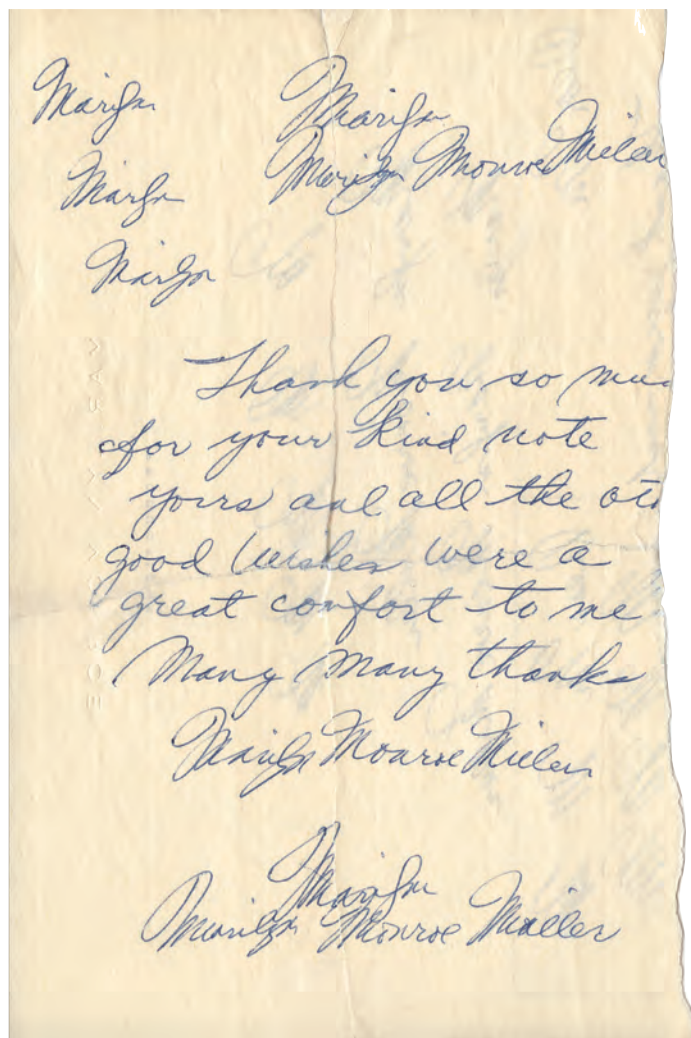 Marilyn Marilyn
Marilyn Marilyn Monroe Miller
Marilyn
Thank you so muc
for your kind note
yours and all the oth
good wishes were a
great comfort to me
Many Many thanks
Marilyn Monroe Miller
Marilyn
Marilyn Monroe Miller